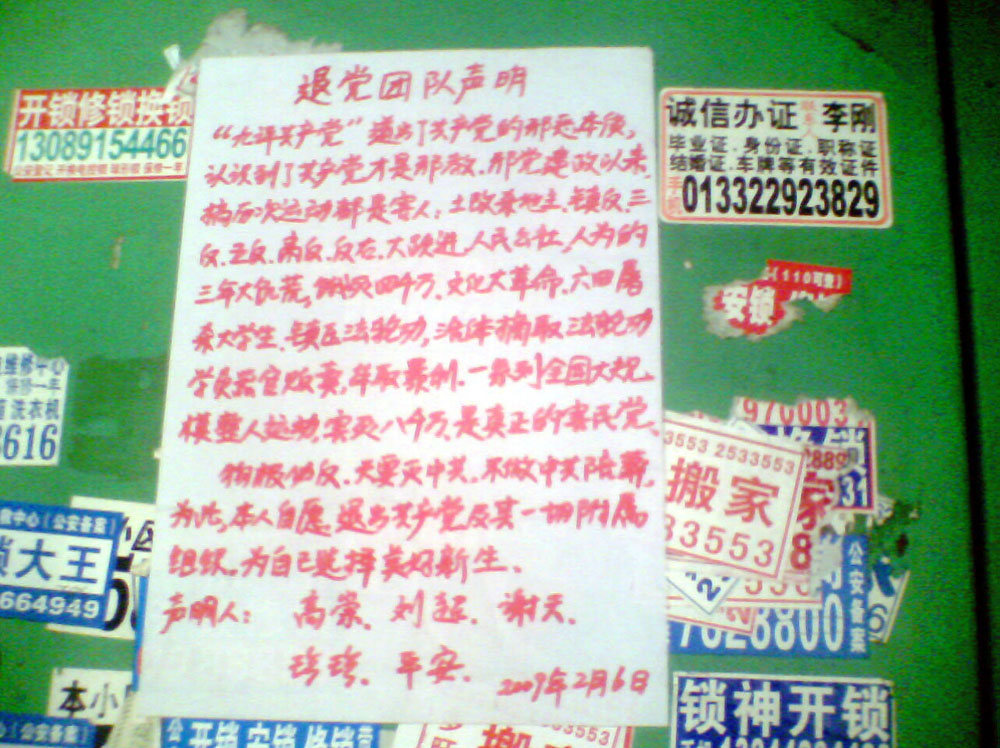 退党团队声明
"九评共产党"道出了共产党的邪恶本质,
认识到了共产党才是邪教.邪党建政以来,
搞历次运动都是害人:土改杀地主.镇反.三
反.五反.肃反.反右.大跃进.人民公社,人为的
三年大饥荒,饿死四千万.文化大革命.六四屠
杀大学生.镇压法轮功,活体摘取法轮功
学员器官贩卖,牟取暴利.一系列全国大规
模整人运动,害死八千万.是真正的害民党.
物极必反.天要灭中共.不做中共陪葬,
为此,本人自愿退出共产党及其一切附属
组织,为自己选择美好新生.
声明人: 高崇. 刘超. 谢天.
玲玲. 平安.
2009年2月6日
开锁修锁换锁
13089154466
诚信办证 李刚
毕业证、身份证、职称证
结婚证、车牌等有效证件
013322923829
(110可查)
安锁
维修中心
修一年
洗衣机
8616
中心(公安备案)
锁大王
664949
本小
970003
3553 2533553
搬家
33553
家
公安备案
7028800
开锁安锁修锁
2533553
搬
锁神开锁